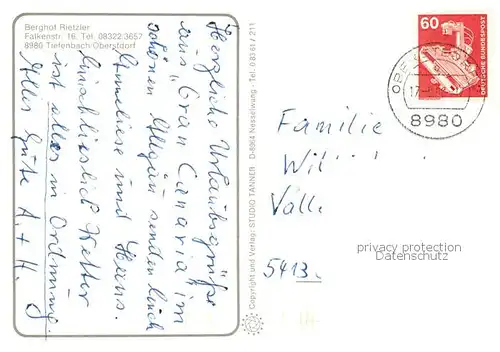 Berghof Rietzler
Falkenstr. 16, Tel. 08322.3657
8980 Tiefenbach/Oberstdorf
Herzliche Urlaubsgrüße
aus "Gran Canaria" im
schönen Allgäu senden Euch
Anneliese und Hans.
Einschließlich Wetter
ist alles in Ordnung.
Alles Gute A. + H.
Copyright und Verlag: STUDIO TANNER D-8964 Nesselwang · Tel. 08361 / 211
60
DEUTSCHE BUNDESPOST
8980
Familie
Wil
Valle
5413
privacy protection
Datenschutz